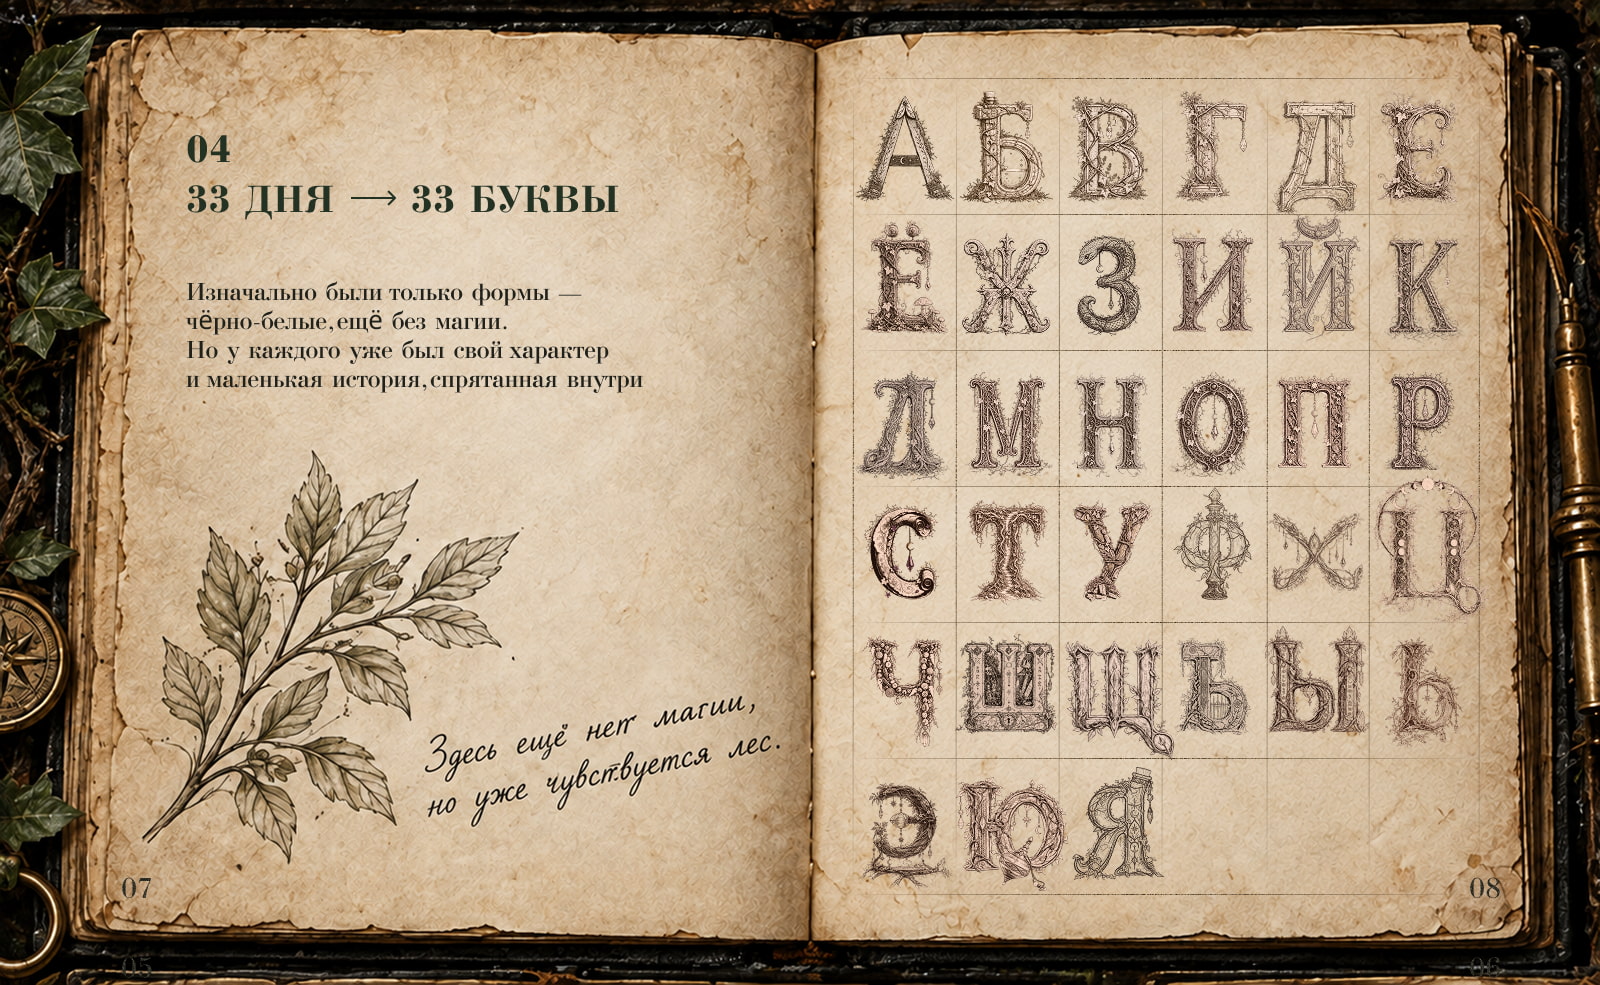 04
33 ДНЯ → 33 БУКВЫ
Изначально были только формы —
чёрно-белые, ещё без магии.
Но у каждого уже был свой характер
и маленькая история, спрятанная внутри
Здесь ещё нет магии,
но уже чувствуется лес.
07
А Б В Г Д Е
Ё Ж З И Й К
Л М Н О П Р
С Т У Ф Х Ц
Ч Ш Щ Ъ Ы Ь
Э Ю Я
08
05
06